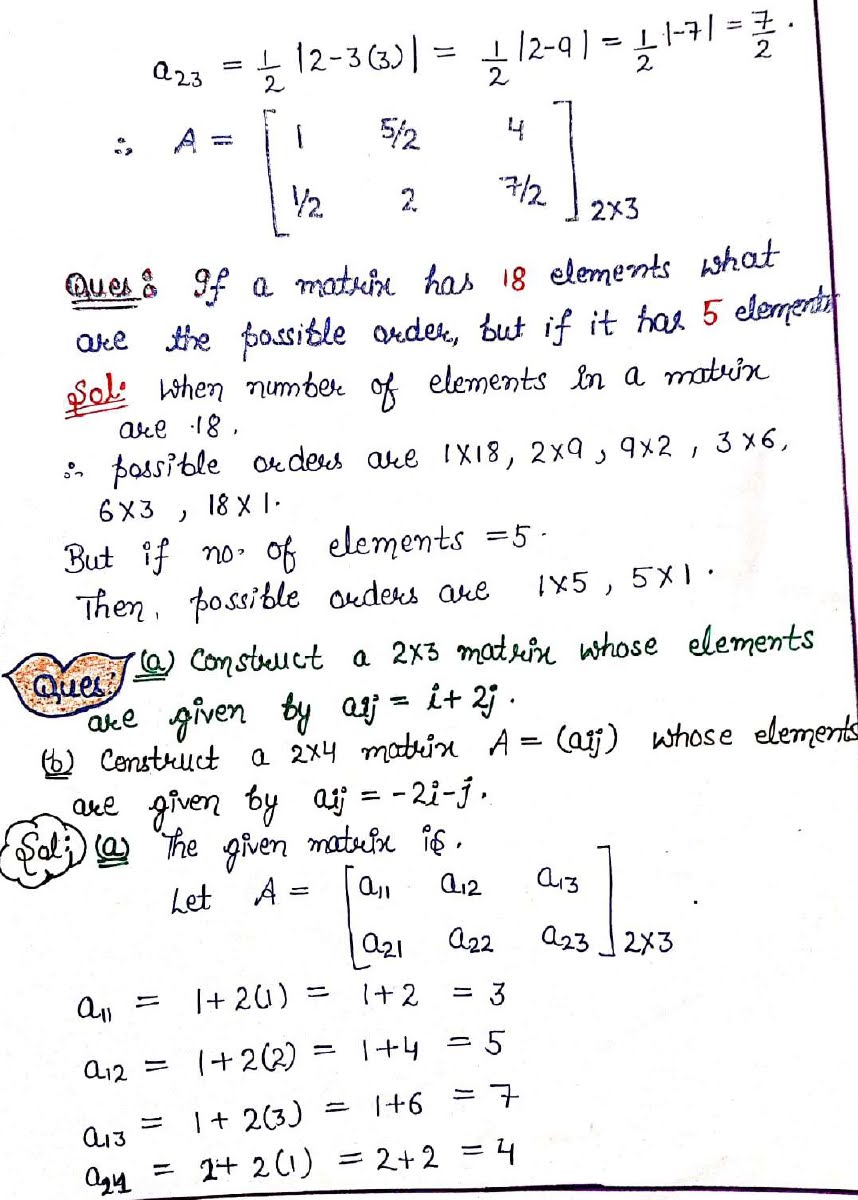 a₂₃ = 1/2 |2-3(3)| = 1/2 |2-9| = 1/2 |-7| = 7/2 .
∴ A = [ 1 5/2 4
1/2 2 7/2 ] 2×3
Ques: If a matrix has 18 elements what
are the possible order, but if it has 5 elements
Sol: When number of elements in a matrix
are 18.
∴ possible orders are 1×18, 2×9, 9×2, 3×6,
6×3, 18×1.
But if no. of elements = 5.
Then, possible orders are 1×5, 5×1.
Ques: (a) Construct a 2×3 matrix whose elements
are given by aij = i+2j.
(b) Construct a 2×4 matrix A = (aij) whose elements
are given by aij = -2i-j.
Sol: (a) The given matrix is.
Let A = [ a₁₁ a₁₂ a₁₃
a₂₁ a₂₂ a₂₃ ] 2×3 .
a₁₁ = 1+2(1) = 1+2 = 3
a₁₂ = 1+2(2) = 1+4 = 5
a₁₃ = 1+2(3) = 1+6 = 7
a₂₁ = 2+2(1) = 2+2 = 4